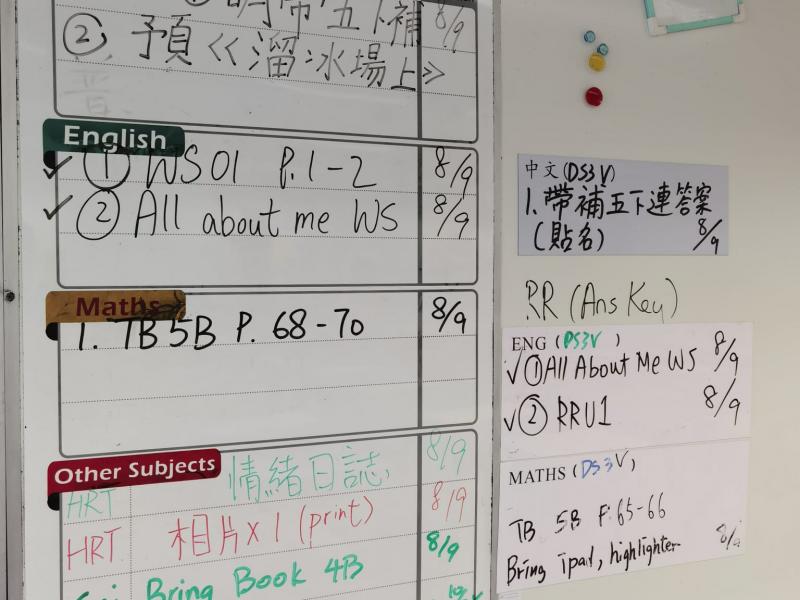 帶 五下補 8/9
② 預《溜冰場上》
English
① WS01 P.1-2 8/9
② All about me WS 8/9
Maths
1. TB 5B P. 68-70 8/9
Other Subjects
HRT 情緒日誌 8/9
HRT 相片x1 (print) 8/9
Bring Book 4B 8/9
中文(DS3V)
1. 帶補五下連答案
(貼名) 8/9
RR (Ans Key)
ENG (DS3V)
①All About Me WS 8/9
② RRU1 8/9
MATHS (DS3V)
TB 5B P. 65-66
Bring ipad, highlighter 8/9